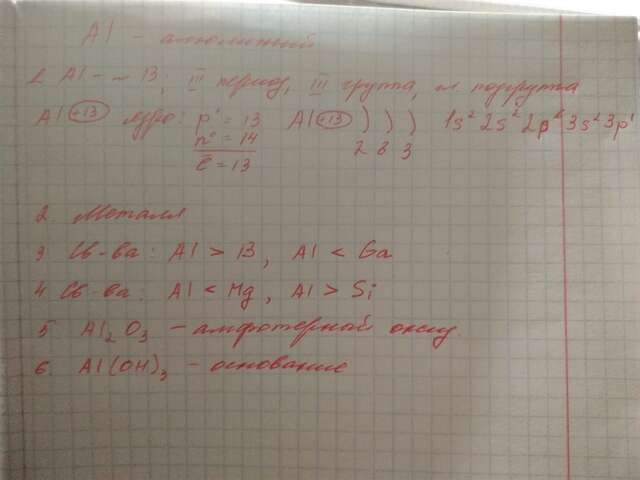 Al - алюминий
1. Al - № 13; III период, III группа, гл подгруппа
Al +13 ядро: p⁺ = 13 Al +13 ) ) ) 1s² 2s² 2p⁶ 3s² 3p¹
n⁰ = 14 2 8 3
e̅ = 13
2. Металл
3. Св-ва: Al > B, Al < Ga
4. Св-ва: Al < Mg, Al > Si
5. Al₂O₃ - амфотерный оксид.
6. Al(OH)₃ - основание